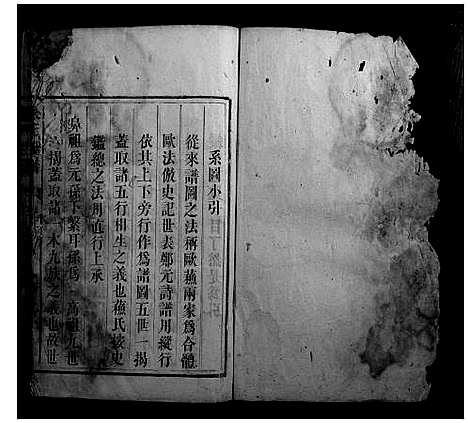 系圖小引
從來譜圖之法稱歐蘇兩家爲合體
歐法倣史記世表鄭元詩譜用縱行
依其上下旁行作爲譜圖五世一揭
蓋取諸五行相生之義也蘇氏按史
鑑總之法用直行上承
鼻祖爲元孫下繫耳孫爲 高祖九世
揭蓋取諸 木九族之義也故世